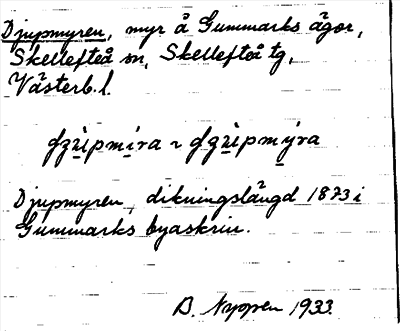 Djupmyren, myr å Gummarks ägor,
Skellefteå sn, Skellefteå tg,
Västerb. l.
Djupmyren, dikningslängd 1873 i
Gummarks byaskrin.
B. Nyppen 1933.